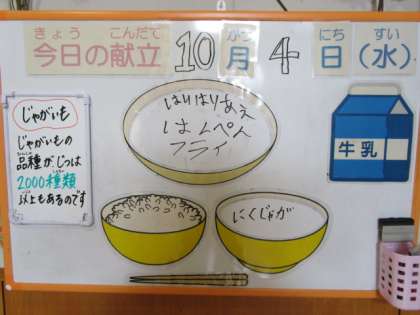 きょう こんだて がつ にち すい
今日の献立 10月4日(水)
じゃがいも
じゃがいもの
品種が、じつは
2000種類
以上もあるのです
はりはりあえ
はんぺん
フライ
牛乳
にくじゃが